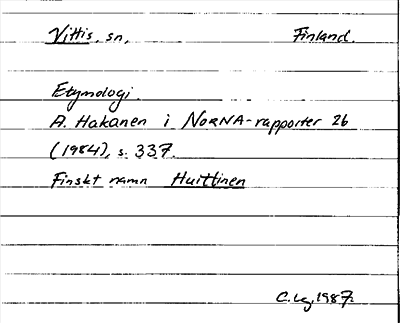 Vittis, sn, Finland.
Etymologi.
A. Hakanen i NORNA-rapporter 26
(1984), s. 337.
Finskt namn Huittinen
C. Lg. 1987.